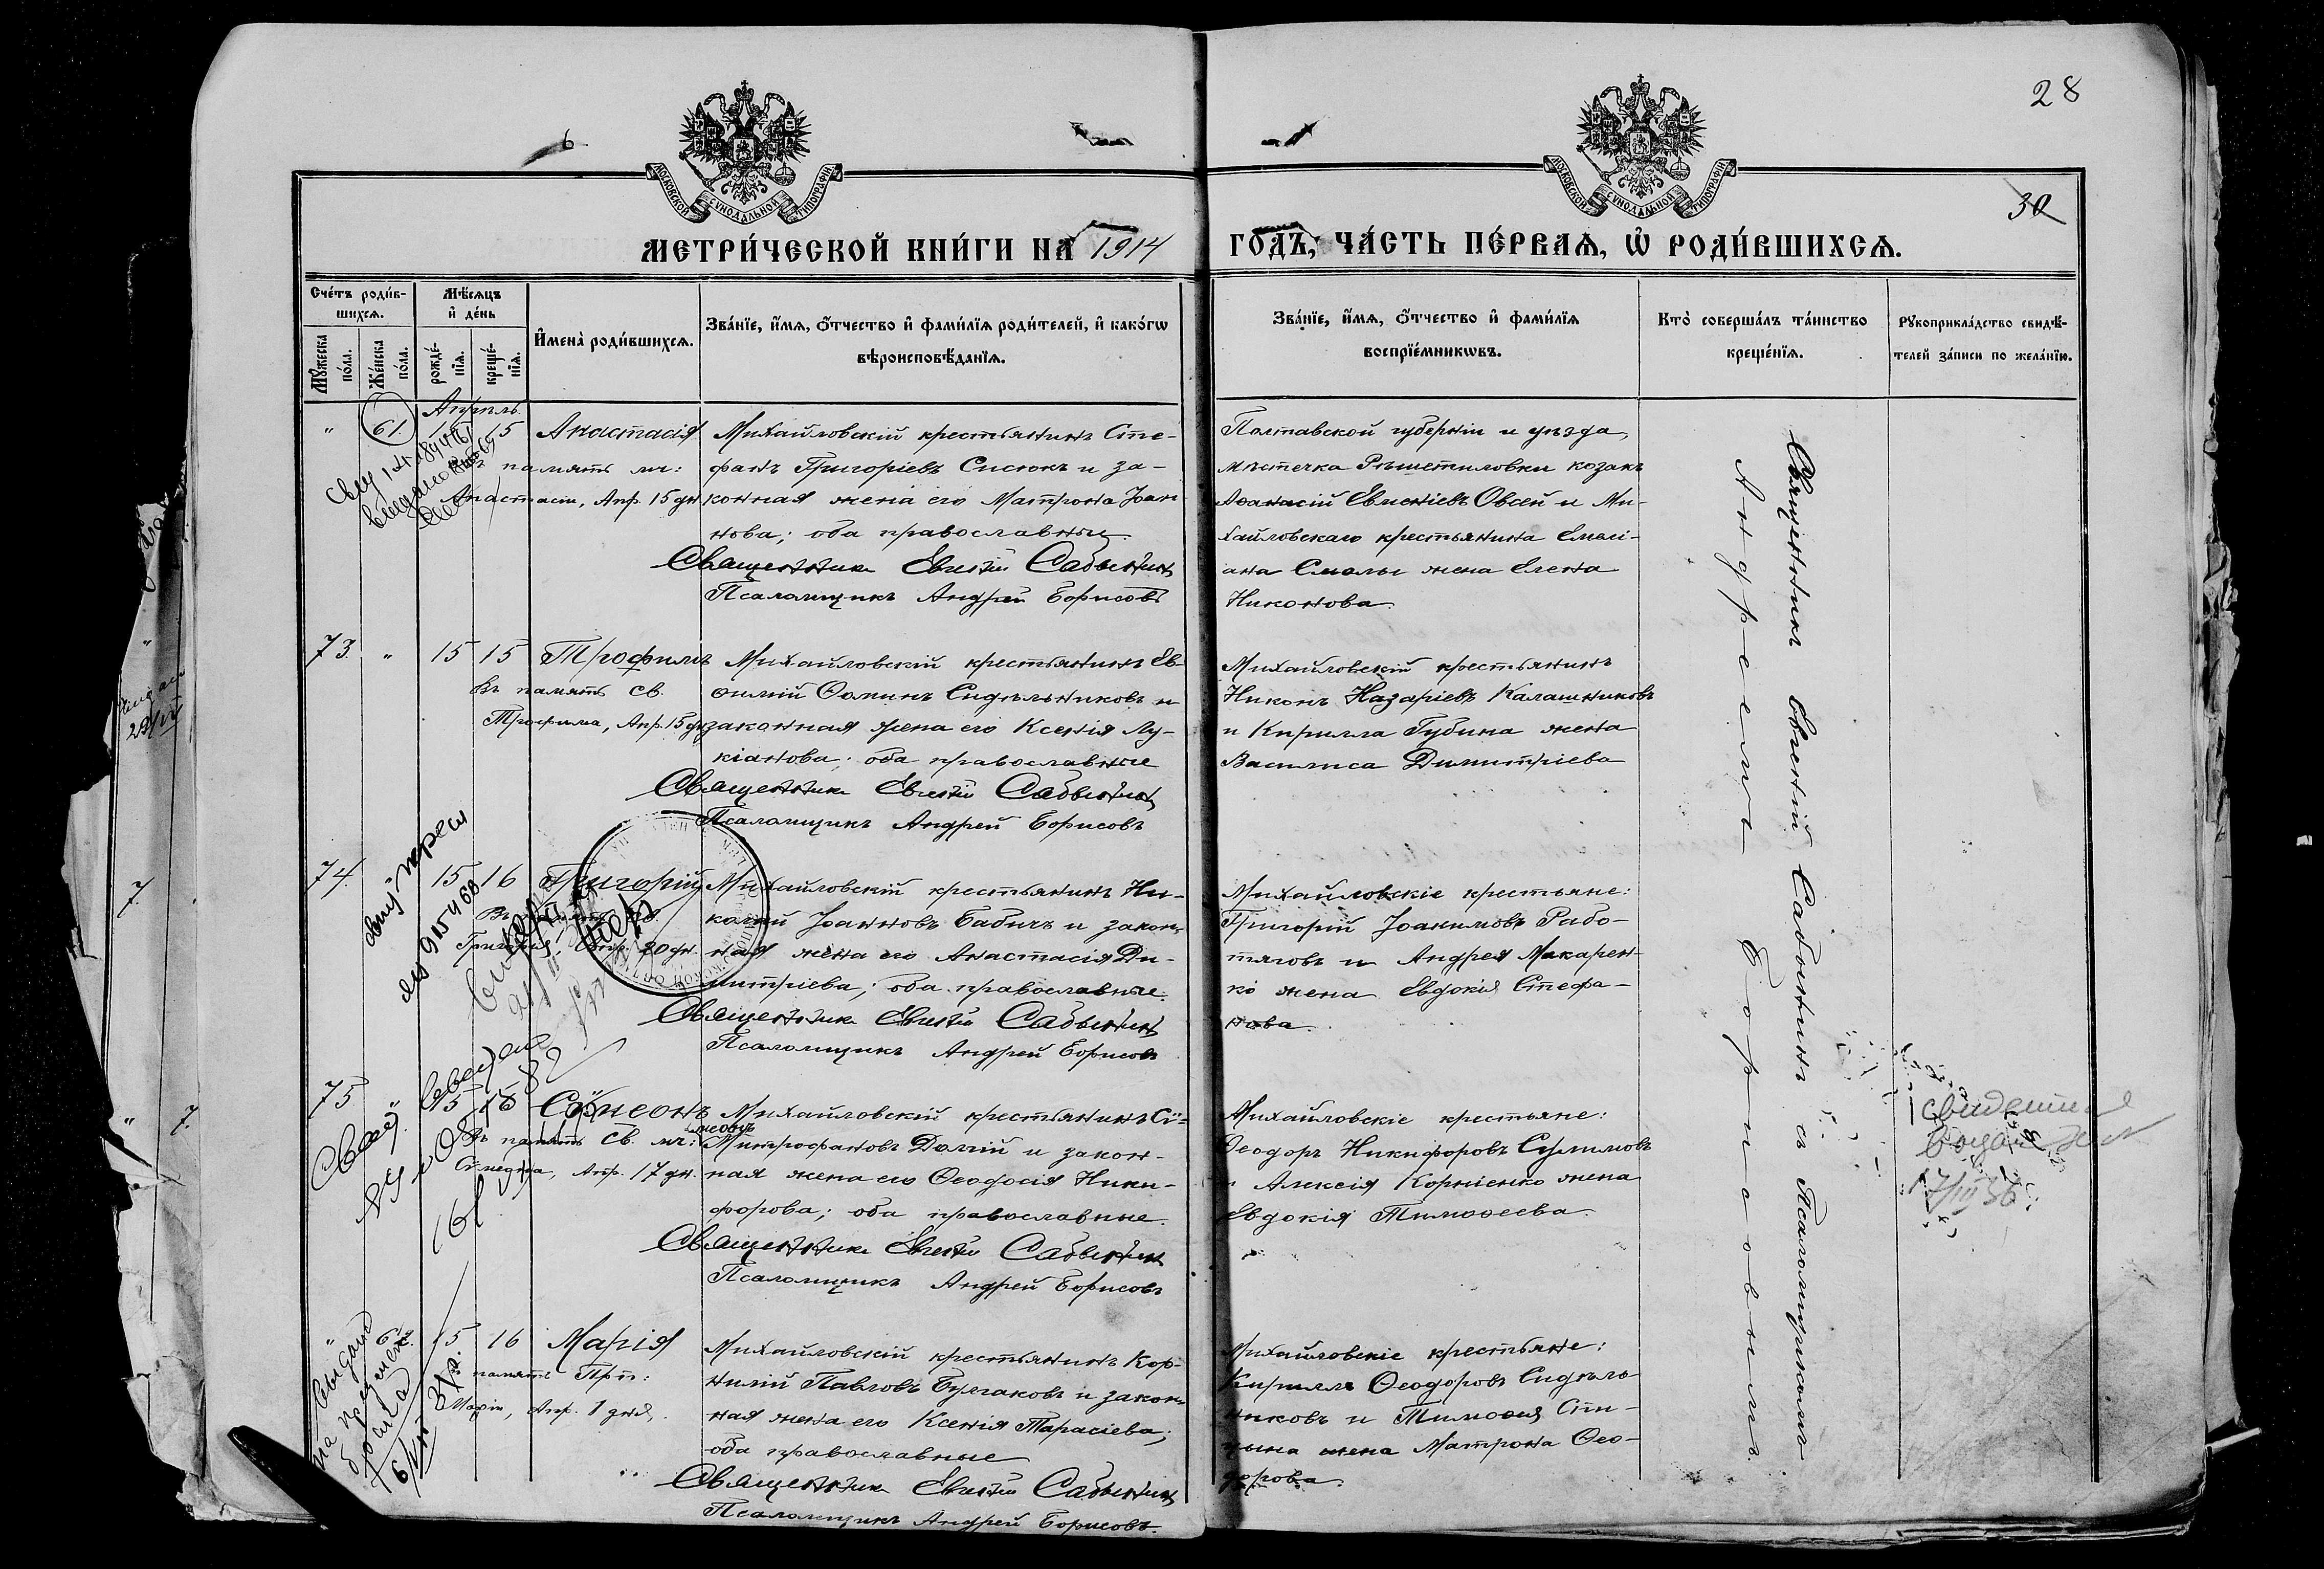 28
30
6
МОСКОВСКОЙ СѴНОДАЛЬНОЙ ТИПОГРАФІИ
МОСКОВСКОЙ СѴНОДАЛЬНОЙ ТИПОГРАФІИ
МЕТРИ́ЧЕСКОЙ КНИ́ГИ НА 1914
ГОДЪ, ЧА́СТЬ ПЕ́РВАѦ, Ѡ҆ РОДИ́ВШИХСѦ.
Сче́тъ роди́в-
шихсѧ.
Мꙋ́жеска по́ла.
Же́нска по́ла.
Мѣ́сѧцъ
и҆ де́нь
рожде́-
нїѧ.
креще́-
нїѧ.
И҆мена̀ роди́вшихсѧ.
Зва́нїе, и҆́мѧ, ѻ҆́тчество и҆ фами́лїѧ роди́телей, и҆ како́гѡ
вѣроисповѣ́данїѧ.
Зва́нїе, и҆́мѧ, ѻ҆́тчество и҆ фами́лїѧ
воспрїе́мникѡвъ.
Кто̀ соверша́лъ та́инство
креще́нїѧ.
Рꙋкоприкла́дство свидѣ́-
телей за́писи по жела́нїю.
Апрѣль
" 61. 15 Анастасія
память мч:
Анастасіи, Апр. 15 дн.
Михайловскій крестьянинъ Сте-
фанъ Григоріевъ Сисюкъ и за-
конная жена его Матрона Іоан-
нова; оба православны.
Священникъ Евгеній Сабынинъ
Псаломщикъ Андрей Борисовъ
Полтавской губерніи и уѣзда,
мѣстечка Рѣшетиловки козакъ
Аѳанасій Евгеніевъ Овсей и Ми-
хайловскаго крестьянина Емелі-
ана Смолы жена Елена
Никонова.
73. " 15 15 Трофимъ
Въ память св.
Трофима, Апр. 15 дн.
Михайловскій крестьянинъ Ев-
ѳимій Ѳоминъ Сидѣльниковъ и
законная жена его Ксенія Лу-
кіанова; оба православные
Священникъ Евгеній Сабынинъ
Псаломщикъ Андрей Борисовъ
Михайловскій крестьянинъ
Никонъ Назаріевъ Калашниковъ
и Кирилла Губина жена
Василиса Димитріева
74. 15 16 Григорій
Въ память св.
Григорія, Апр. 20 дн.
Михайловскій крестьянинъ Ни-
колай Іоанновъ Бабичъ и закон-
ная жена его Анастасія Ди-
митріева; оба православные.
Священникъ Евгеній Сабынинъ
Псаломщикъ Андрей Борисовъ
Михайловскіе крестьяне:
Григорій Іоакимовъ Рабо-
тяговъ и Андрея Макарен-
ко жена Евдокія Стефа-
нова.
75. " 15 Сѵмеонъ
Въ память св. мч:
Сѵмеона, Апр. 17 дн.
Михайловскій крестьянинъ Сѵ-
меонъ
Митрофановъ Долгій и закон-
ная жена его Ѳеодосія Ники-
форова; оба православные.
Священникъ Евгеній Сабынинъ
Псаломщикъ Андрей Борисовъ
Михайловскіе крестьяне:
Ѳеодоръ Никифоровъ Сулимовъ
и Алексія Корніенко жена
Евдокія Тимоѳеева.
" 62. 15 16 Марія
память Прп:
Маріи, Апр. 1 дня.
Михайловскій крестьянинъ Кор-
нилій Павловъ Булгаковъ и закон-
ная жена его Ксенія Тарасіева;
оба православные
Священникъ Евгеній Сабынинъ
Псаломщикъ Андрей Борисовъ
Михайловскіе крестьяне:
Кириллъ Ѳеодоровъ Сидѣль-
никовъ и Тимоѳея Спи-
цына жена Матрона Ѳео-
дорова.
Священникъ Евгеній Сабынинъ съ Псаломщикомъ
Андреемъ Борисовымъ
17/III 36
7.
7.